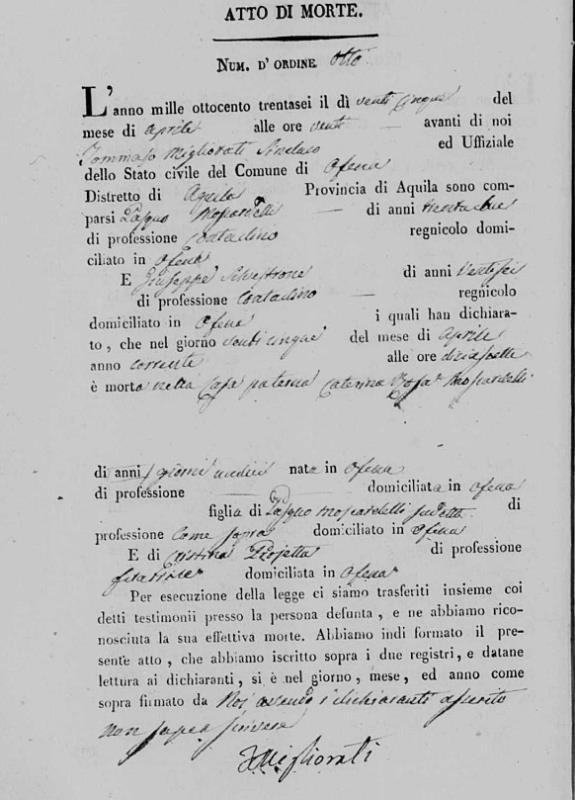 ATTO DI MORTE.
NUM. D' ORDINE otto
L'anno mille ottocento trentasei il dì venti cinque del
mese di aprile alle ore venti avanti di noi
Tommaso Migliorati Sindaco ed Uffiziale
dello Stato civile del Comune di Ofena
Distretto di Aquila Provincia di Aquila sono com-
parsi Pasquale Moscardelli di anni trentadue
di professione Contadino regnicolo domi-
ciliato in Ofena
E Giuseppe Silvestrone di anni Ventisei
di professione Contadino regnicolo
domiciliato in Ofena i quali han dichiara-
to, che nel giorno venti cinque del mese di aprile
anno corrente alle ore diciasette
è morta nella casa paterna Caterina Rosa Moscardelli
di anni giorni undici nata in Ofena
di professione domiciliata in Ofena
figlia di Pasquale Moscardelli sudetto di
professione come sopra domiciliato in Ofena
E di Cristina di professione
filatrice domiciliata in Ofena
Per esecuzione della legge ci siamo trasferiti insieme coi
detti testimonii presso la persona defunta, e ne abbiamo rico-
nosciuta la sua effettiva morte. Abbiamo indi formato il pre-
sente atto, che abbiamo iscritto sopra i due registri, e datane
lettura ai dichiaranti, si è nel giorno, mese, ed anno come
sopra firmato da Noi avendo i dichiaranti asserito
non saper scrivere
Migliorati